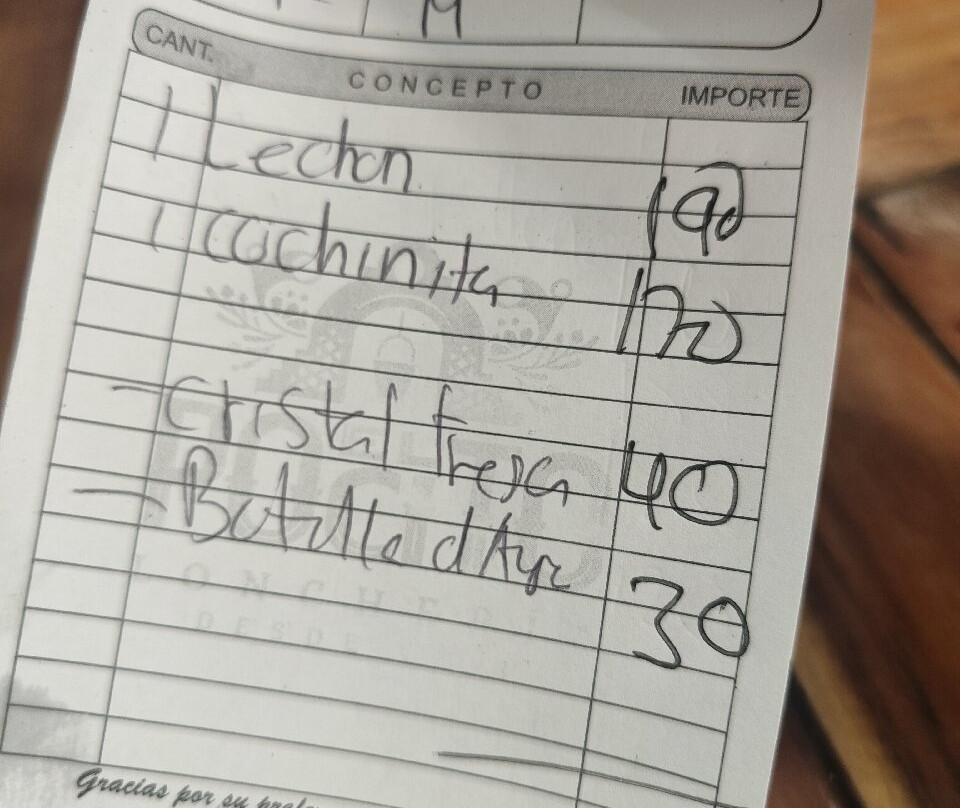 M
CANT. CONCEPTO IMPORTE
1 Lechon 190
1 cochinita 120
- cristal fresa 40
- Botella d Agu 30
LONCHERIA
DESDE
Gracias por su